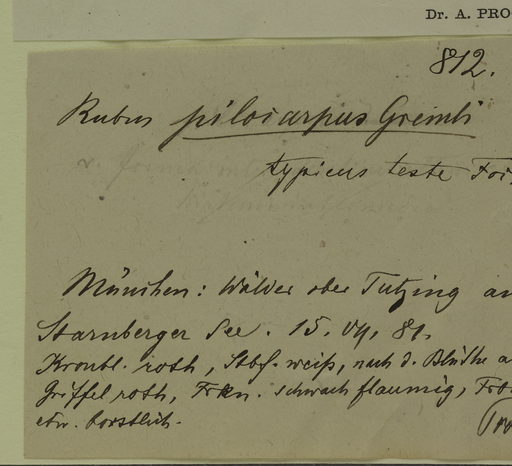 Dr. A. PRO
812.
Rubus pilocarpus Gremli
typicus teste
München: Wälder ober Tutzing am
Starnberger See. 15. VII. 81.
Kronbl. roth, Stbf. weiß, nach d. Blüthe
Griffel roth, Frkn. schwach flaumig,
etw. borstlich.